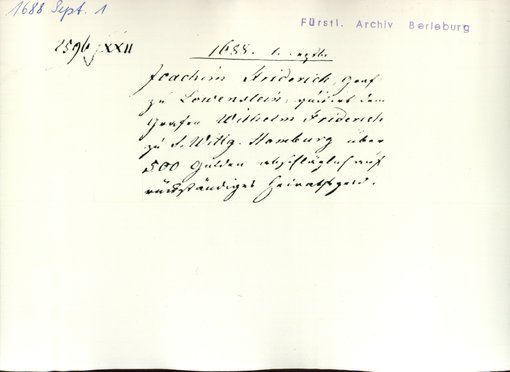 1688 Sept. 1
Fürstl. Archiv Berleburg
2596 XXII
1688. 1. Septbr.
Joachim Friderich, Graf
zu Löwenstein, quittirt dem
Grafen Wilhelm Friderich
zu S. Wittg. Homburg über
500 Gulden abschläglich auf
rückständiges Heirathsgeld.